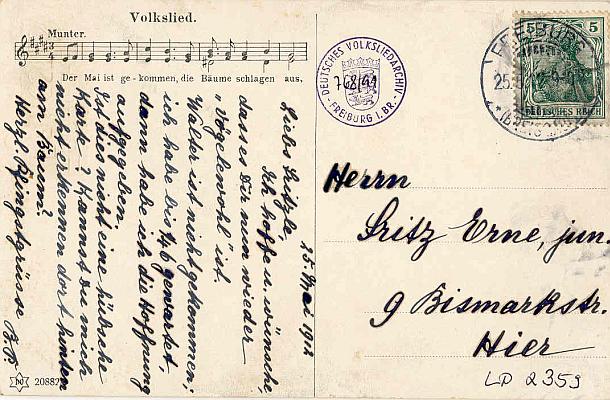 Volkslied.
Munter.
Der Mai ist ge-kommen, die Bäume schlagen aus,
25. Mai 1912
Liebs Fritzle,
Ich hoffe u. wünsche,
dasses Dir nun wieder
„Vögelewohl" ist.
Walter ist nicht gekommen;
ich habe bis ¼6 gewartet,
dann habe ich die Hoffnung
aufgegeben.
Ist die nicht eine hübsche
Karte? Kannst du mich
nicht erkennen dort hinten
am Baum?
Herzl. Pfingstgrüsse
B.B
20882
DEUTSCHES VOLKSLIEDARCHIV
768/41
FREIBURG I. BR.
FREIBURG
25.
* (BREISGAU)
5
DEUTSCHES REICH
Herrn
Fritz Erne, jun.
9 Bismarkstr.
Hier
LP 2359